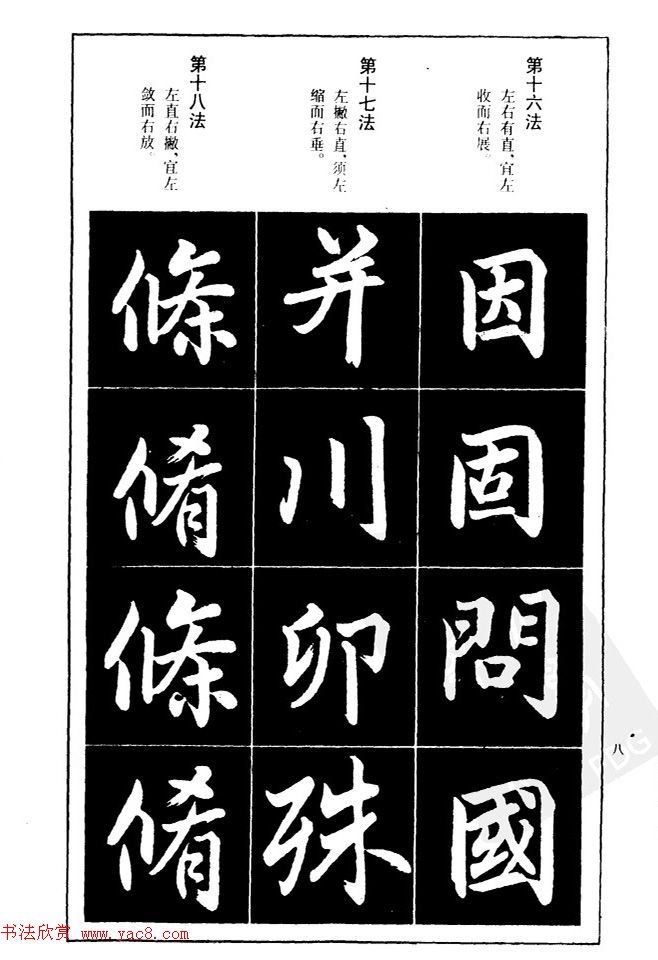 第十六法
左右有直、宜左
收而右展。
因
固
問
國
第十七法
左撇右直、须左
缩而右垂。
并
川
卯
殊
第十八法
左直右撇、宜左
敛而右放。
條
脩
條
脩
八
书法欣赏 www.yac8.com